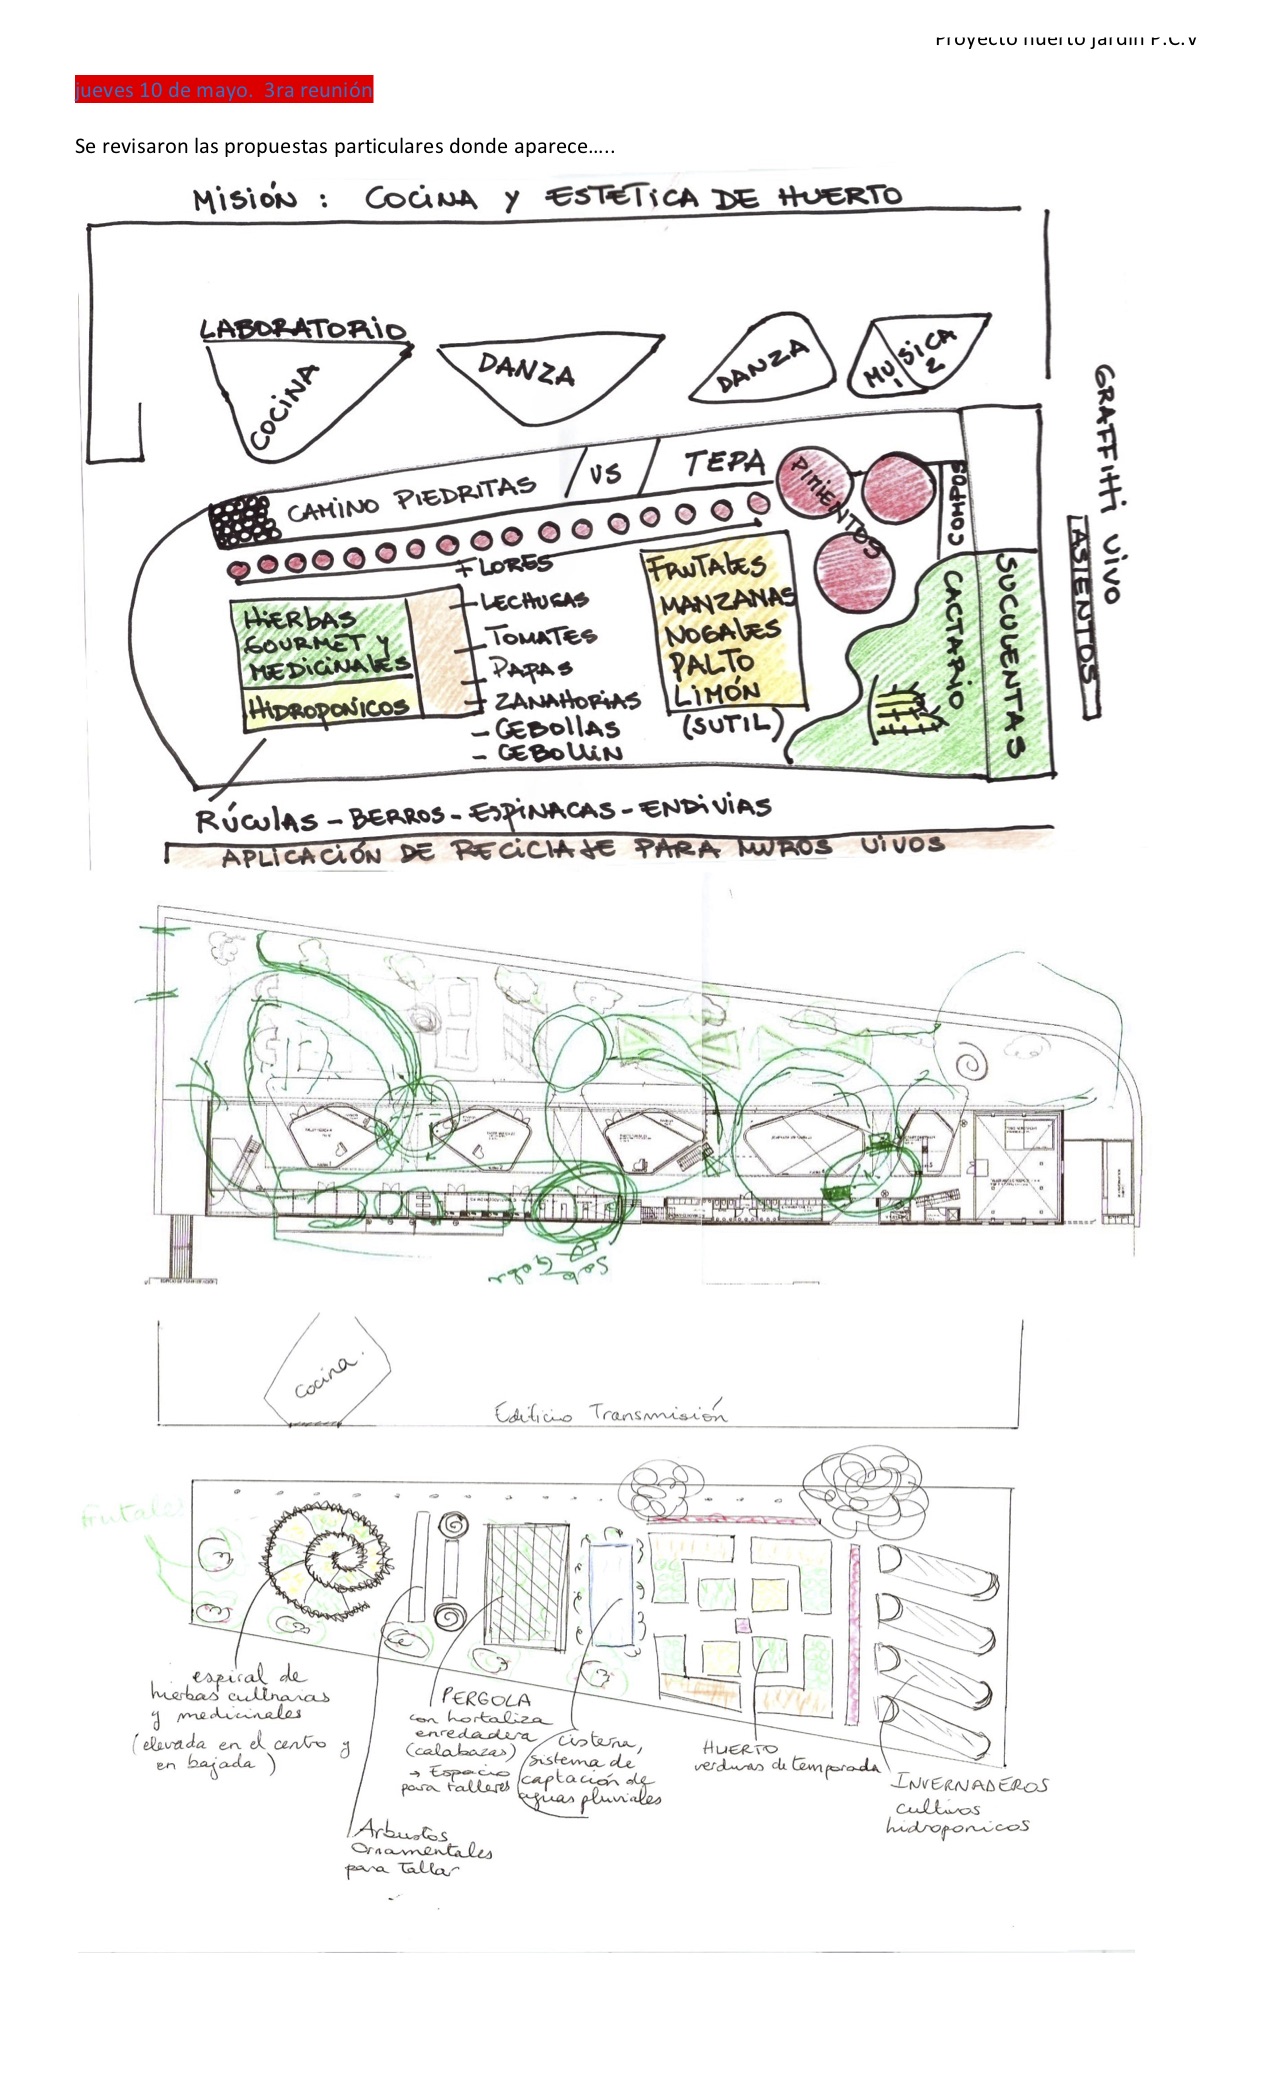 Proyecto huerto jardín P.C.V
jueves 10 de mayo.  3ra reunión
Se revisaron las propuestas particulares donde aparece.....
Misión : COCINA Y ESTETICA DE HUERTO
LABORATORIO
COCINA
DANZA
DANZA
MUSICA
1 2
GRAFFITI VIVO
ASIENTOS
CAMINO PIEDRITAS / VS / TEPA
PIMIENTOS
COMPOS
FLORES
HIERBAS
GOURMET Y
MEDICINALES
HIDROPONICOS
- LECHUGAS
- TOMATES
- PAPAS
- ZANAHORIAS
- CEBOLLAS
- CEBOLLIN
FRUTALES
MANZANAS
NOGALES
PALTO
LIMÓN
(SUTIL)
CACTARIO
SUCULENTAS
RÚCULAS - BERROS - ESPINACAS - ENDIVIAS
APLICACIÓN DE RECICLAJE PARA MUROS VIVOS
cocina.
Edificio Transmisión
frutales
espiral de
hierbas culinarias
y medicinales
(elevada en el centro y
en bajada)
Arbustos
Ornamentales
para Tallar
PERGOLA
con hortaliza
enredadera
(calabazas)
→ Espacio
para talleres
cisterna,
sistema de
captación de
aguas pluviales
HUERTO
verduras de temporada
INVERNADEROS
cultivos
hidroponicos